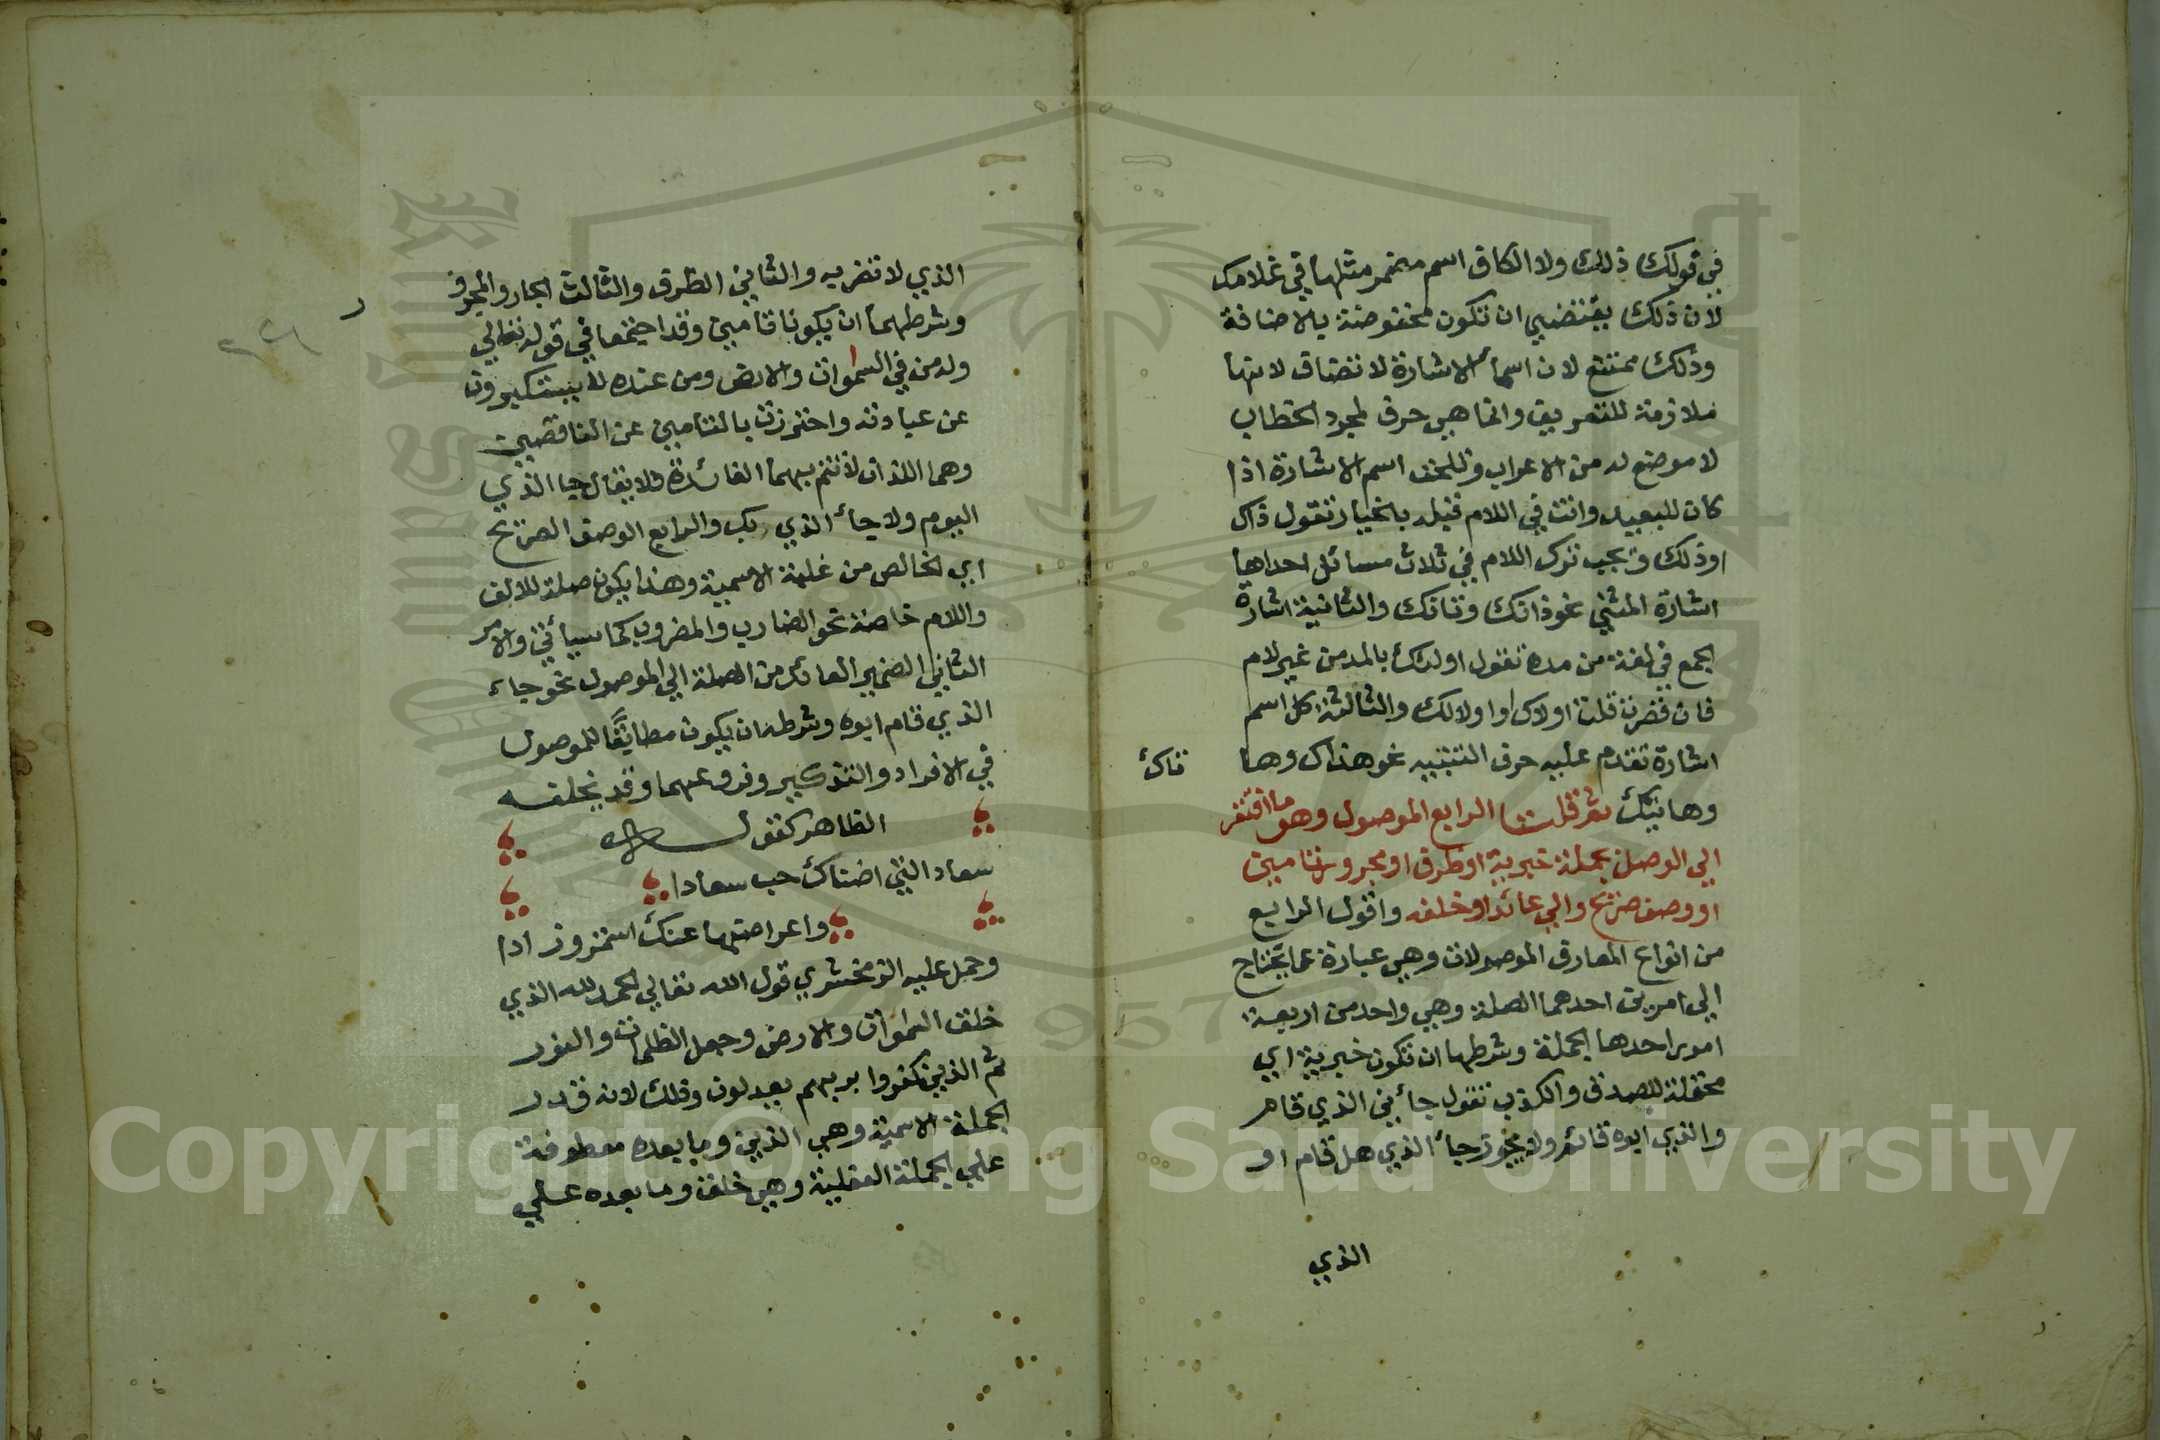 في قولك ذلك ولا الكاف اسم مضمر مثلها في غلامك
لان ذلك يقتضي ان تكون مخفوضة بالاضافة
وذلك ممتنع لان اسمأ الاشارة لا تضاف لانها
ملازمة للتعريف وانما هي حرف لمجرد الخطاب
لا موضع له من الاعراب وتلحق اسم الاشارة اذا
كان للبعيد وانت في اللام قبله بالخيار تقول ذاك
اوذلك ويجب ترك اللام في ثلاث مسائل احداها
اشارة المثني نحو ذانك وتانك والثانية اشارة
الجمع في لغة من مده تقول اولئك بالمد من غير لام
فان قصرت قلت اولاك او اولالك والثالثة كل اسم
اشارة تقدم عليه حرف التنبيه نحو هذاك وها تاك
وهاتيك ثم قلت الرابع الموصول وهو ما افتقر
الي الوصل بجملة خبرية او ظرف او مجرور تامين
او وصف صريح والي عائد او خلفه واقول الرابع
من انواع المعارف الموصولات وهي عبارة عما يحتاج
الي امرين احدهما الصلة وهي واحد من اربعة
امور احدها الجملة وشرطها ان تكون خبرية اي
محتملة للصدق والكذب تقول جأني الذي قام
والذي ابوه قائم ولا يجوز جأ الذي هل قام او
الذي
الذي لا تضربه والثاني الظرف والثالث الجار والمجرور
وشرطهما ان يكونا تامين وقد اجتمعا في قوله تعالي
وله من في السموات والارض ومن عنده لا يستكبرون
عن عبادته واحترزت بالتامين عن الناقصين
وهما اللذان لا تتم بهما الفائدة فلا يقال جا الذي
اليوم ولا جأ الذي بك والرابع الوصف الصريح
اي الخالص من غلبة الاسمية وهذا يكون صلة للالف
واللام خاصة نحو الضارب والمضروب كما سيأتي والامر
الثاني الضمير العائد من الصلة الي الموصول نحو جاء
الذي قام ابوه وشرطه ان يكون مطابقًا للموصول
في الافراد والتذكير وفروعهما وقد يخلفه
الظاهر كقول
سعاد التي اضناك حب سعادا
واعراضها عنك استمر وزادا
وحمل عليه الزمخشري قول الله تعالي الحمد لله الذي
خلق السموات والارض وجعل الظلمات والنور
ثم الذين كفروا بربهم يعدلون وذلك لانه قدر
الجملة الاسمية وهي الذين وما بعده معطوفة
علي الجملة الفعلية وهي خلق وما بعده علي
Copyright © King Saud University
1957